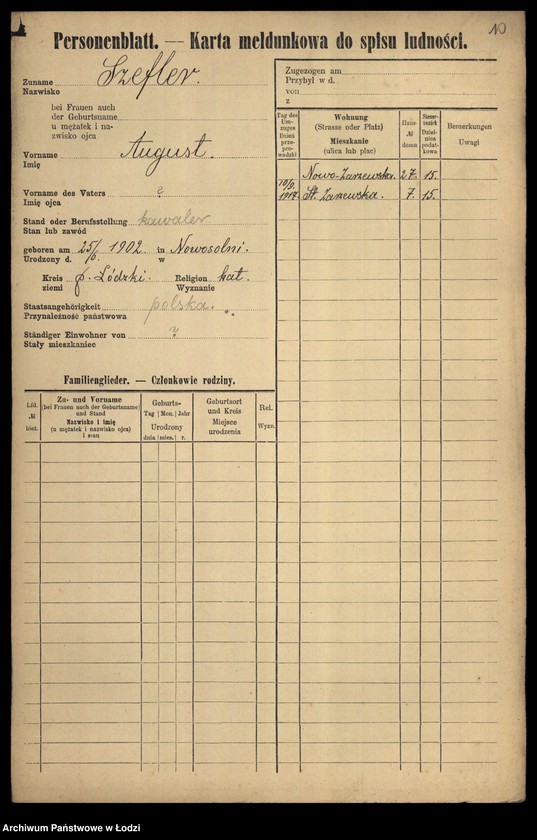 10
Personenblatt. — Karta meldunkowa do spisu ludności.
Zuname Szefler.
Nazwisko
bei Frauen auch
der Geburtsname
u mężatek i na-
zwisko ojca
Vorname August.
Imię
Vorname des Vaters ?
Imię ojca
Stand oder Berufsstellung kawaler
Stan lub zawód
geboren am 25/6 1902 in Nowosolni.
Urodzony d. w
Kreis p. Łódzki. Religion kat.
ziemi Wyznanie
Staatsangehörigkeit polska.
Przynależność państwowa
Ständiger Einwohner von ?
Stały mieszkaniec
Familienglieder. — Członkowie rodziny.
Lfd. № bież.
Zu- und Vorname
(bei Frauen auch der Geburtsname)
und Stand
Nazwisko i imię
(u mężatek i nazwisko ojca)
i stan
Geburts-
Tag | Mon. | Jahr
Urodzony
dnia | mies. | r.
Geburtsort
und Kreis
Miejsce
urodzenia
Rel.
Wyzn.
Zugezogen am
Przybył w d.
von
z
Tag des
Um-
zuges
Dzień
prze-
prowadzki
Wohnung
(Strasse oder Platz)
Mieszkanie
(ulica lub plac)
Haus-
№
domu
Steuer-
bezirk
Dziel-
nica
podat-
kowa
Bemerkungen
Uwagi
Nowo-Zarzewska. 27. 15.
1917. St. Zarzewska. 7. 15.
Archiwum Państwowe w Łodzi